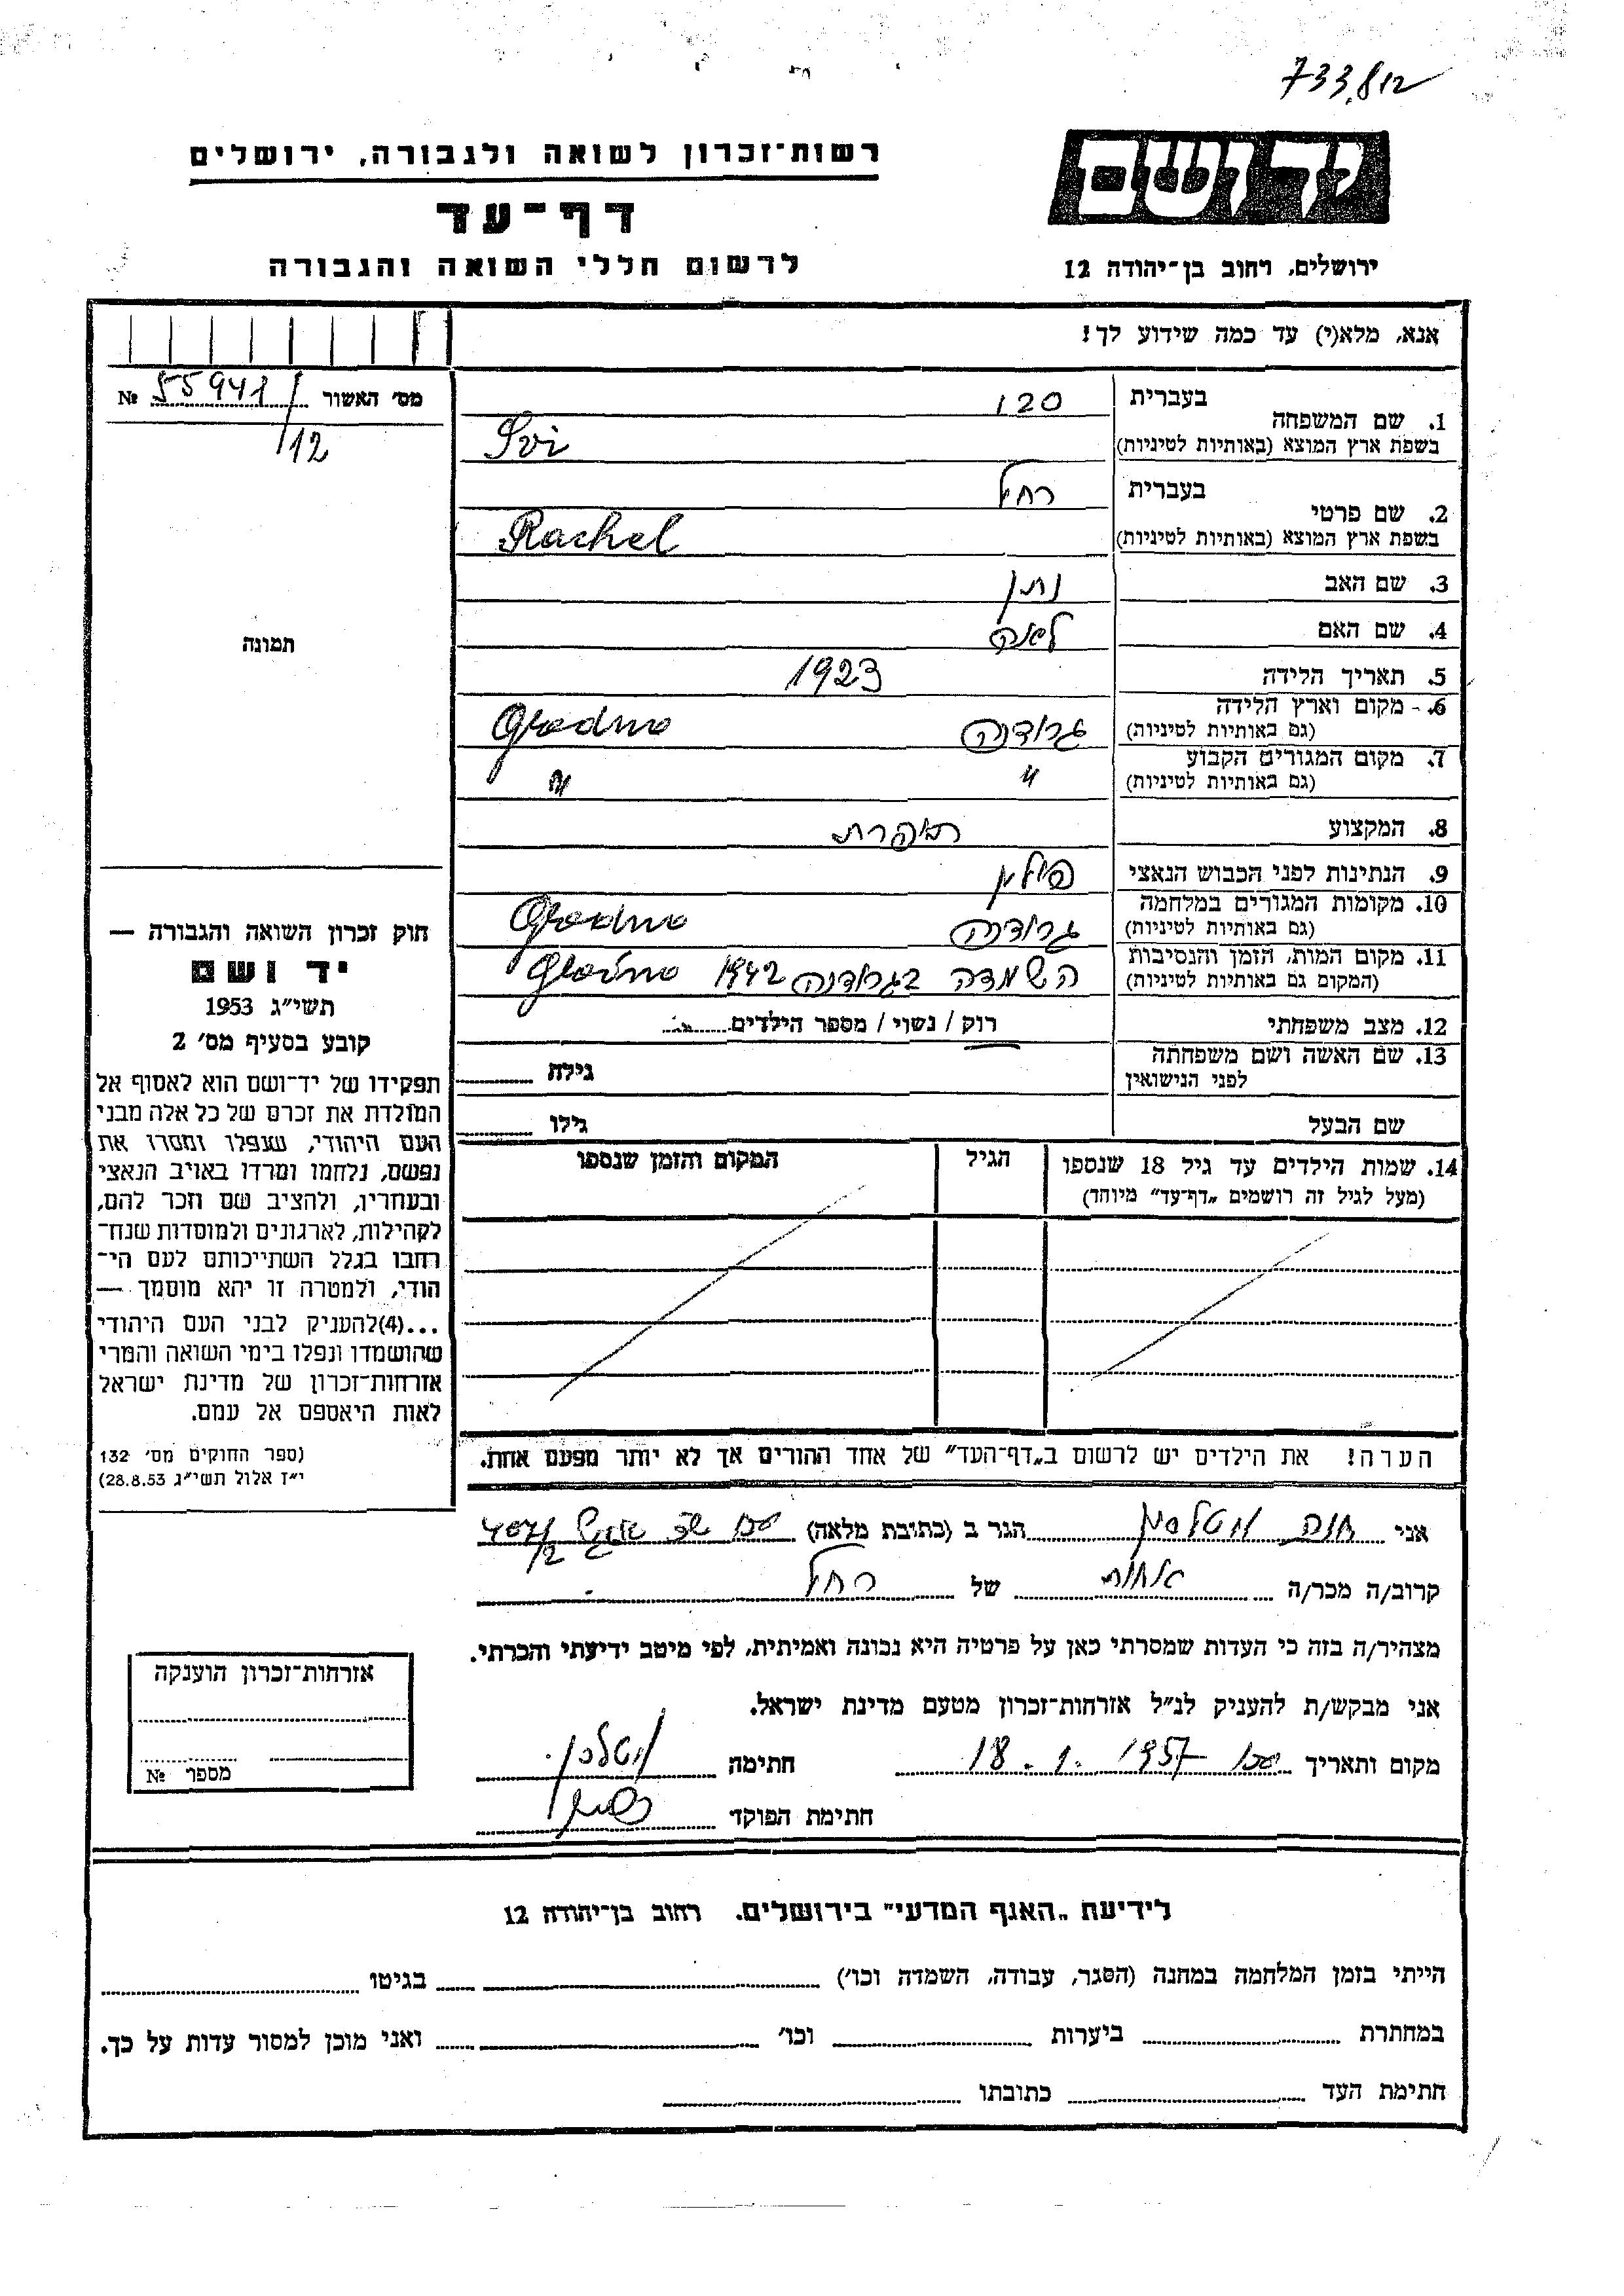 733.812
יד ושם
ירושלים, רחוב בן־יהודה 12
רשות־זכרון לשואה ולגבורה, ירושלים
דף־עד
לרשום חללי השואה והגבורה
אנא, מלא(י) עד כמה שידוע לך!
1. שם המשפחה בעברית
בשפת ארץ המוצא (באותיות לטיניות) Svi
2. שם פרטי בעברית רחל
בשפת ארץ המוצא (באותיות לטיניות) Rachel
3. שם האב נתן
4. שם האם
5. תאריך הלידה 1923
6. מקום וארץ הלידה גרודנה Grodno
(גם באותיות לטיניות)
7. מקום המגורים הקבוע " "
(גם באותיות לטיניות)
8. המקצוע תופרת
9. הנתינות לפני הכבוש הנאצי פולין
10. מקומות המגורים במלחמה גרודנה Grodno
(גם באותיות לטיניות)
11. מקום המות, הזמן והנסיבות השמדה בגרודנה 1942 Grodno
(המקום גם באותיות לטיניות)
12. מצב משפחתי רוק / נשוי / מספר הילדים
13. שם האשה ושם משפחתה גילה
לפני הנישואין
שם הבעל גילו
14. שמות הילדים עד גיל 18 שנספו הגיל המקום והזמן שנספו
(מעל לגיל זה רושמים „דף־עד" מיוחד)
הערה! את הילדים יש לרשום ב„דף־העד" של אחד ההורים אך לא יותר מפעם אחת.
מס' האשור 55941 №
/12
תמונה
חוק זכרון השואה והגבורה —
יד ושם
תשי"ג 1953
קובע בסעיף מס' 2
תפקידו של יד־ושם הוא לאסוף אל
המולדת את זכרם של כל אלה מבני
העם היהודי, שנפלו ומסרו את
נפשם, נלחמו ומרדו באויב הנאצי
ובעוזריו, ולהציב שם וזכר להם,
לקהילות, לארגונים ולמוסדות שנח־
רבו בגלל השתייכותם לעם הי־
הודי, ולמטרה זו יהא מוסמך —
...(4)להעניק לבני העם היהודי
שהושמדו ונפלו בימי השואה והמרי
אזרחות־זכרון של מדינת ישראל
לאות היאספם אל עמם.
(ספר החוקים מס' 132
י"ז אלול תשי"ג 28.8.53)
אני חנה הגר ב (כתובת מלאה)
קרוב/ה מכר/ה אחות של רחל
מצהיר/ה בזה כי העדות שמסרתי כאן על פרטיה היא נכונה ואמיתית, לפי מיטב ידיעתי והכרתי.
אני מבקש/ת להעניק לנ"ל אזרחות־זכרון מטעם מדינת ישראל.
מקום ותאריך 18.1.1957 חתימה
חתימת הפוקד
אזרחות־זכרון הוענקה
מספר №
לידיעת „האגף המדעי" בירושלים. רחוב בן־יהודה 12
הייתי בזמן המלחמה במחנה (הסגר, עבודה, השמדה וכו') בגיטו
במחתרת ביערות וכו' ואני מוכן למסור עדות על כך.
חתימת העד כתובתו